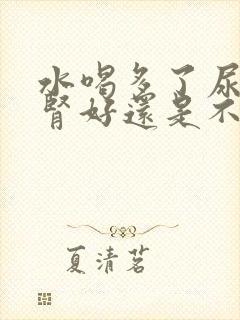 水喝多了尿
腎好還是不
夏清茗